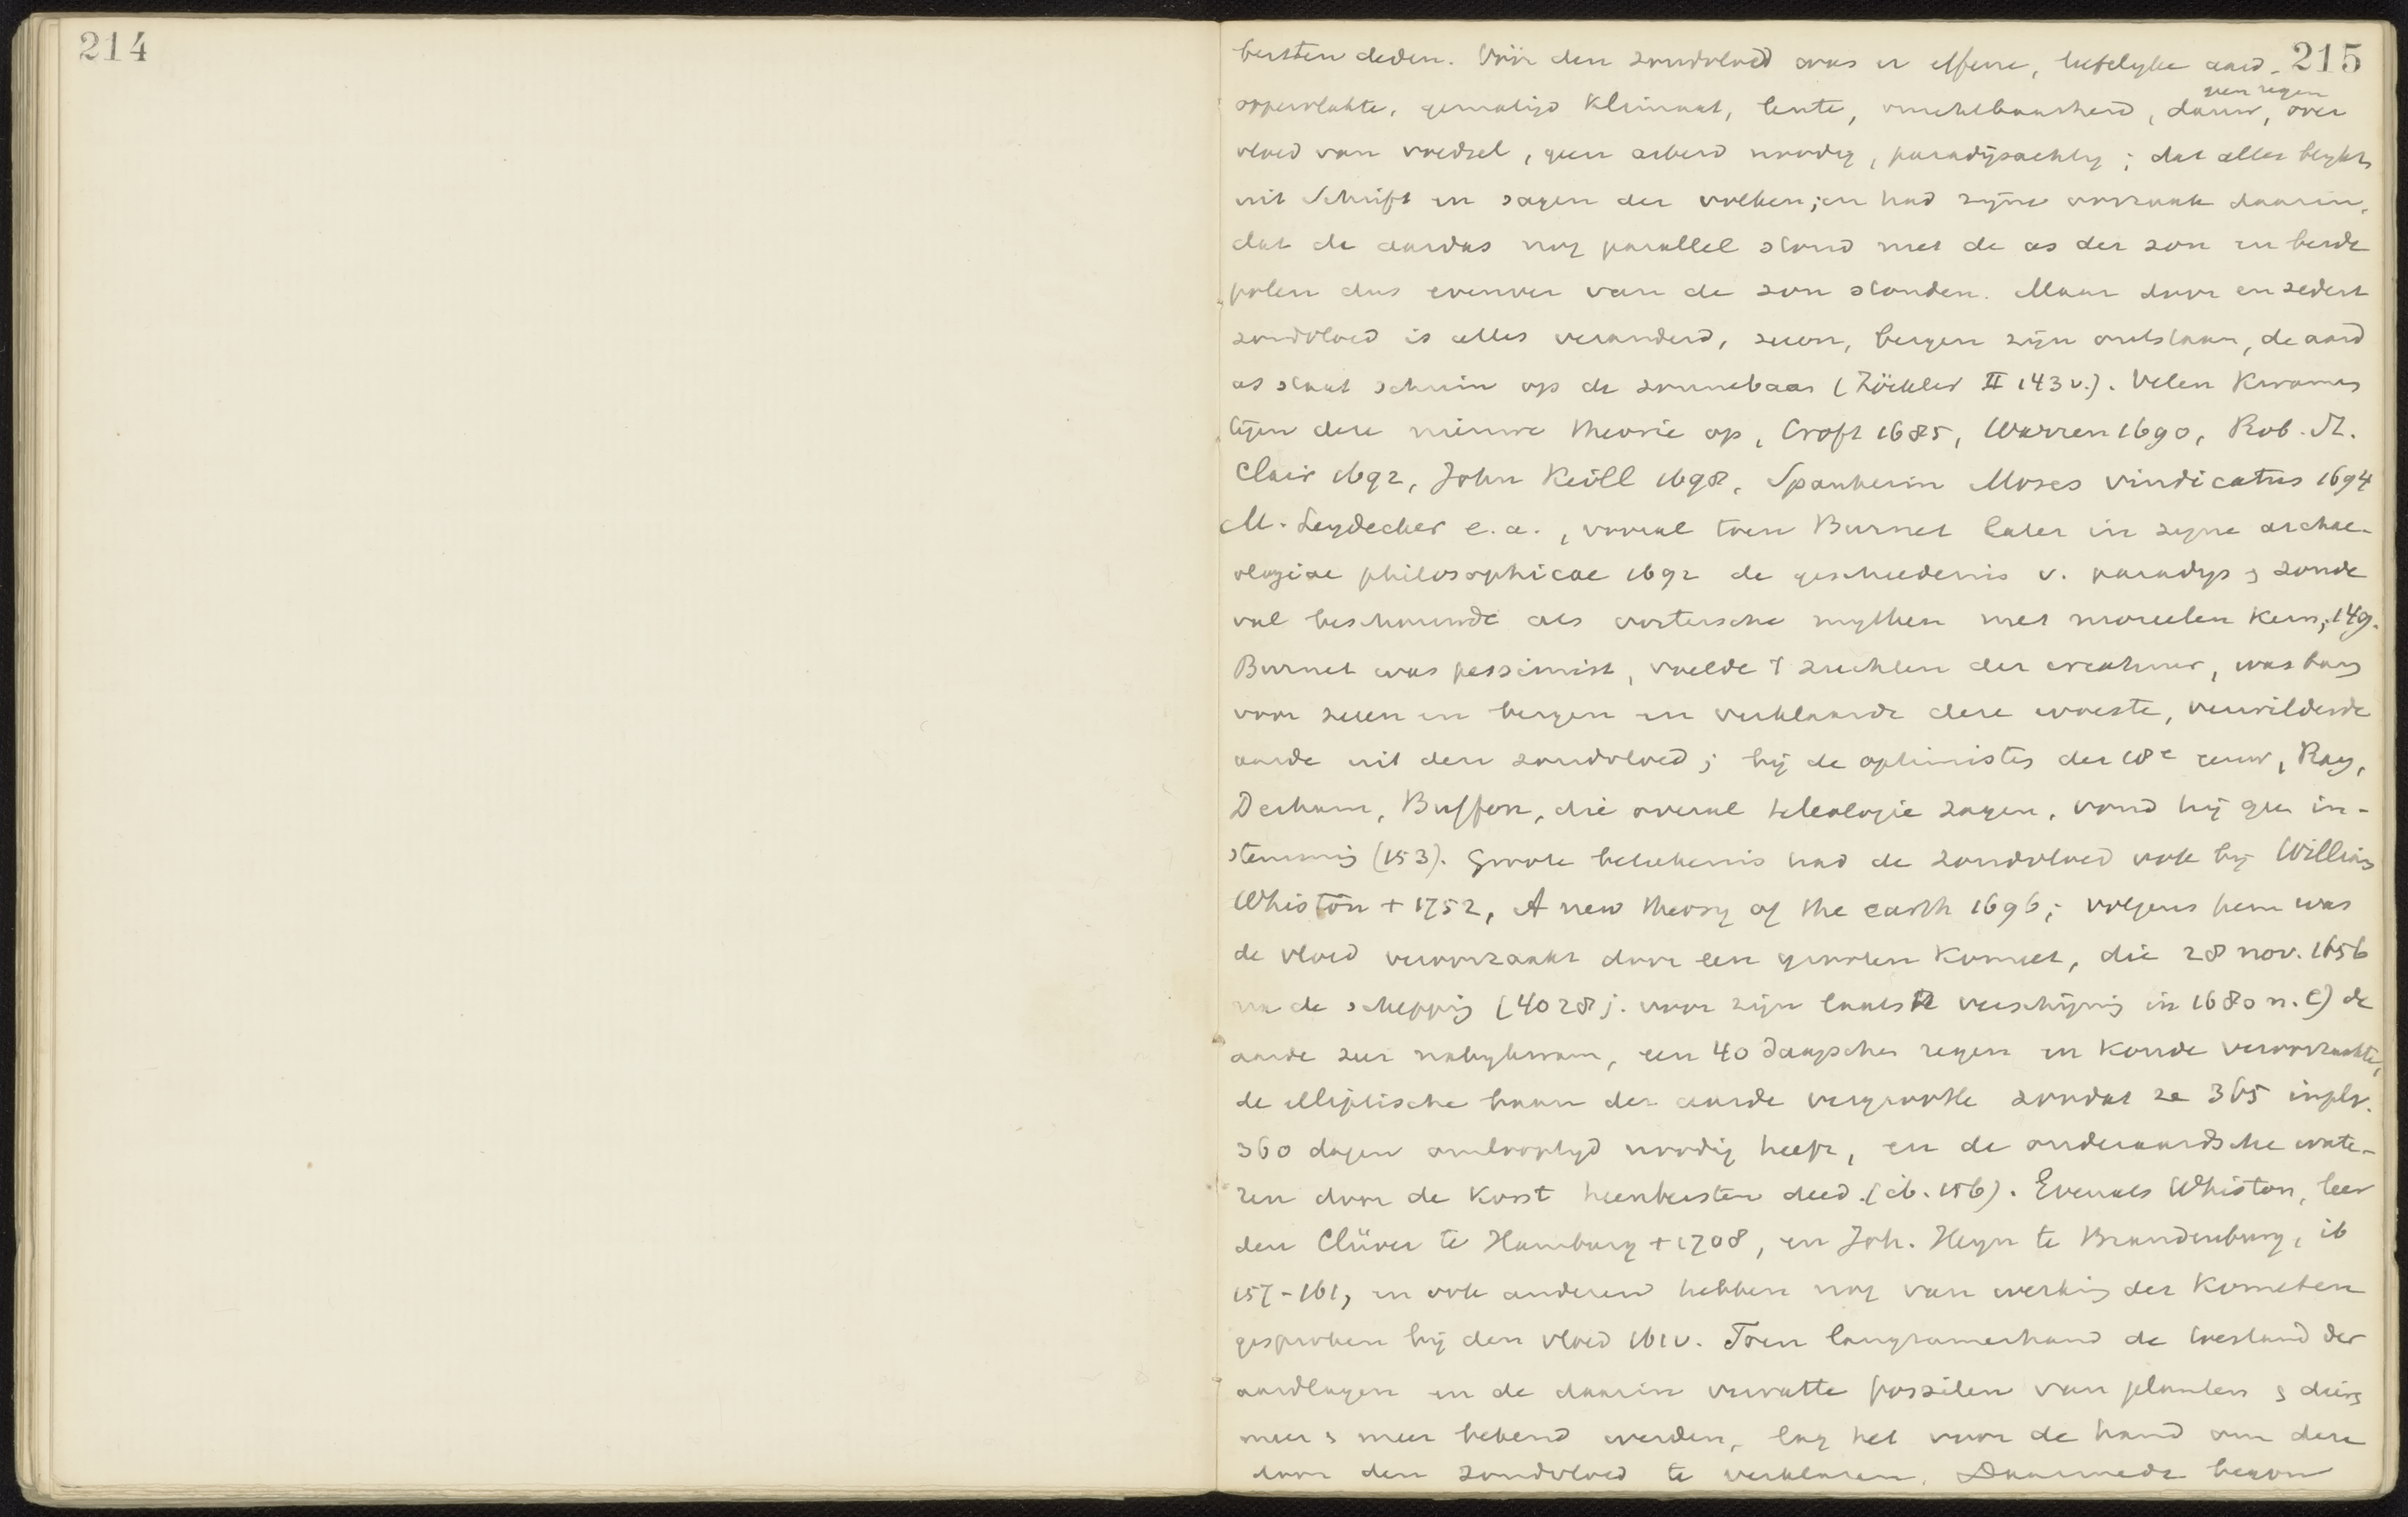 214
215
bersten deden. Vóór den zondvloed was er effene, liefelyke aard-
geen regen
oppervlakte, gematigd klimaat, lente, vruchtbaarheid, dauw, over
vloed van voedsel, geen arbeid noodig, paradijsachtig; dat alles blykt
uit Schrift en sagen der volken; en had zijne oorzaak daarin,
dat de aardas nog parallel stond met de as der zon en beide
polen dus evenver van de zon stonden. Maar door en sedert
zondvloed is alles veranderd, zeeen, bergen zijn ontstaan, de aard
as staat schuin op de zonnebaan (Zöckler II 143 v.). Velen kwamen
tegen deze nieuwe theorie op, Croft 1685, Warren 1690, Rob. St.
Clair 1692, John Keill 1698, Spanheim Moses vindicatus 1694
M. Leydecker e.a., vooral toen Burnet later in zyne archae-
ologiae philosophicae 1692 de geschiedenis v. paradys & zonde
val beschouwde als oostersche mythen met moreelen kern, 149.
Burnet was pessimist, voelde 't zuchten der creatuur, was bang
voor zeeen en bergen en verklaarde deze woeste, verwilderde
aarde uit den zondvloed; bij de optimisten der 18e eeuw, Ray,
Derham, Buffon, die overal teleologie zagen, vond hij geen in-
stemming (153). Groote beteekenis had de zondvloed ook by William
Whiston + 1752, A new theory of the earth 1696; volgens hem was
de vloed veroorzaakt door een grooten komeet, die 28 nov. 1656
na de schepping (4028 j. voor zijn laatste verschijning in 1680 n. C) de
aarde zeer nabykwam, een 40 daagschen regen en koude veroorzaakte,
de elliptische baan der aarde vergrootte zoodat ze 365 inpl.
360 dagen omlooptyd noodig heeft, en de onderaardsche wate-
ren door de korst heenbersten deed. (ib. 156). Evenals Whiston, leer
den Clüver te Hamburg + 1708, en Joh. Heyn te Brandenburg, ib
157-161, en ook anderen hebben nog van werking der kometen
gesproken bij den vloed 161 v. Toen langzamerhand de toestand der
aardlagen en de daarin vervatte fossilen van planten & dieren
meer & meer bekend werden, lag het voor de hand om deze
door den zondvloed te verklaren. Daarmede begon